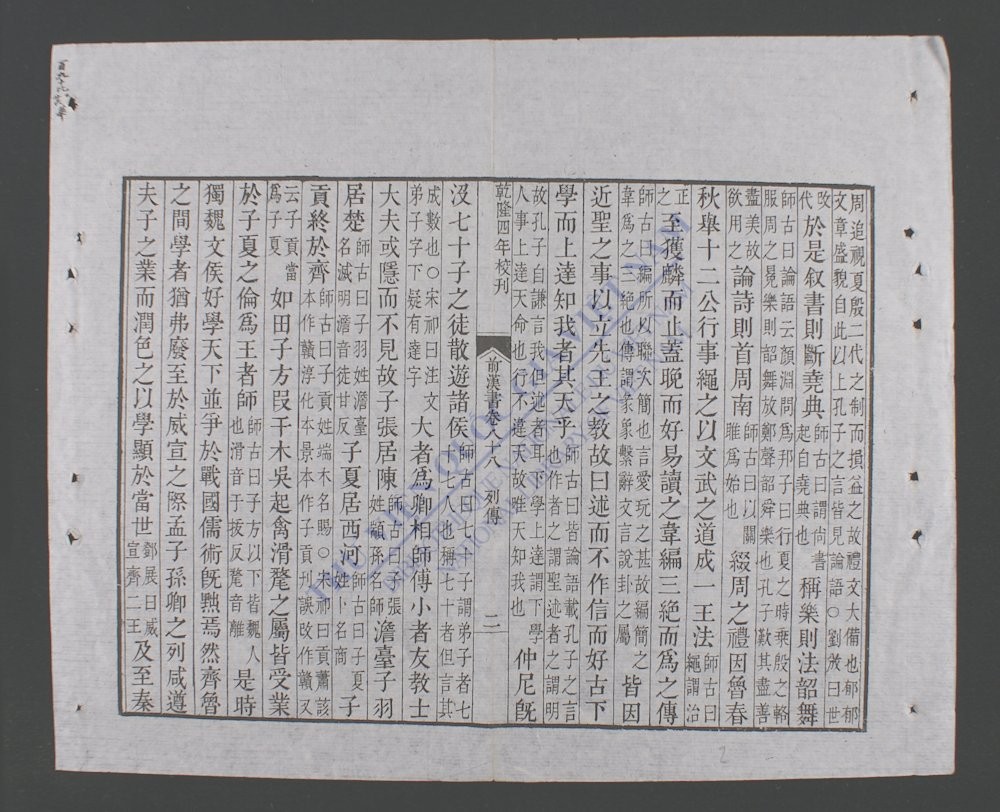 周追視夏殷二代之制而損益之故禮文大備也郁郁
文章盛貌自此以上孔子之言皆見論語○劉攽曰世
改代於是叙書則斷堯典師古曰謂尚書起自堯典也稱樂則法韶舞
師古曰論語云顔淵問爲邦子曰行夏之時乘殷之輅
服周之冕樂則韶舞放鄭聲韶舜樂也孔子歎其盡善
盡美故欲用之論詩則首周南師古曰以關雎爲始也綴周之禮因魯春
秋舉十二公行事繩之以文武之道成一王法師古曰繩謂治
正之至獲麟而止蓋晚而好易讀之韋編三絕而爲之傳
師古曰編所以聯次簡也言愛玩之甚故編簡之韋爲之三絶也傳謂彖象繫辭文言說卦之屬皆因
近聖之事以立先王之教故曰述而不作信而好古下
學而上達知我者其天乎師古曰皆論語載孔子之言也作者之謂聖述者之謂明
故孔子自謙言我但述者耳下學上達謂下學人事上達天命也行不違天故唯天知我也仲尼旣
乾隆四年校刊
前漢書卷八十八 列傳 二
沒七十子之徒散遊諸侯師古曰七十子謂弟子者七十七人也稱七十者但言其
成數也○宋祁曰注文弟子字下疑有達字大者爲卿相師傅小者友教士
大夫或隱而不見故子張居陳師古曰子張姓顓孫名師澹臺子羽
居楚師古曰子羽姓澹臺名滅明澹音徒甘反子夏居西河師古曰子夏姓卜名商子
貢終於齊師古曰子貢姓端木名賜○宋祁曰貢蕭該本作贛淳化本景本作子貢刊誤改作贛又
云子貢當爲子夏如田子方段干木吳起禽滑氂之屬皆受業
於子夏之倫爲王者師師古曰子方以下皆魏人也滑音于拔反氂音離是時
獨魏文侯好學天下並爭於戰國儒術旣黜焉然齊魯
之間學者猶弗廢至於威宣之際孟子孫卿之列咸遵
夫子之業而潤色之以學顯於當世鄧展曰威宣齊二王及至秦
2